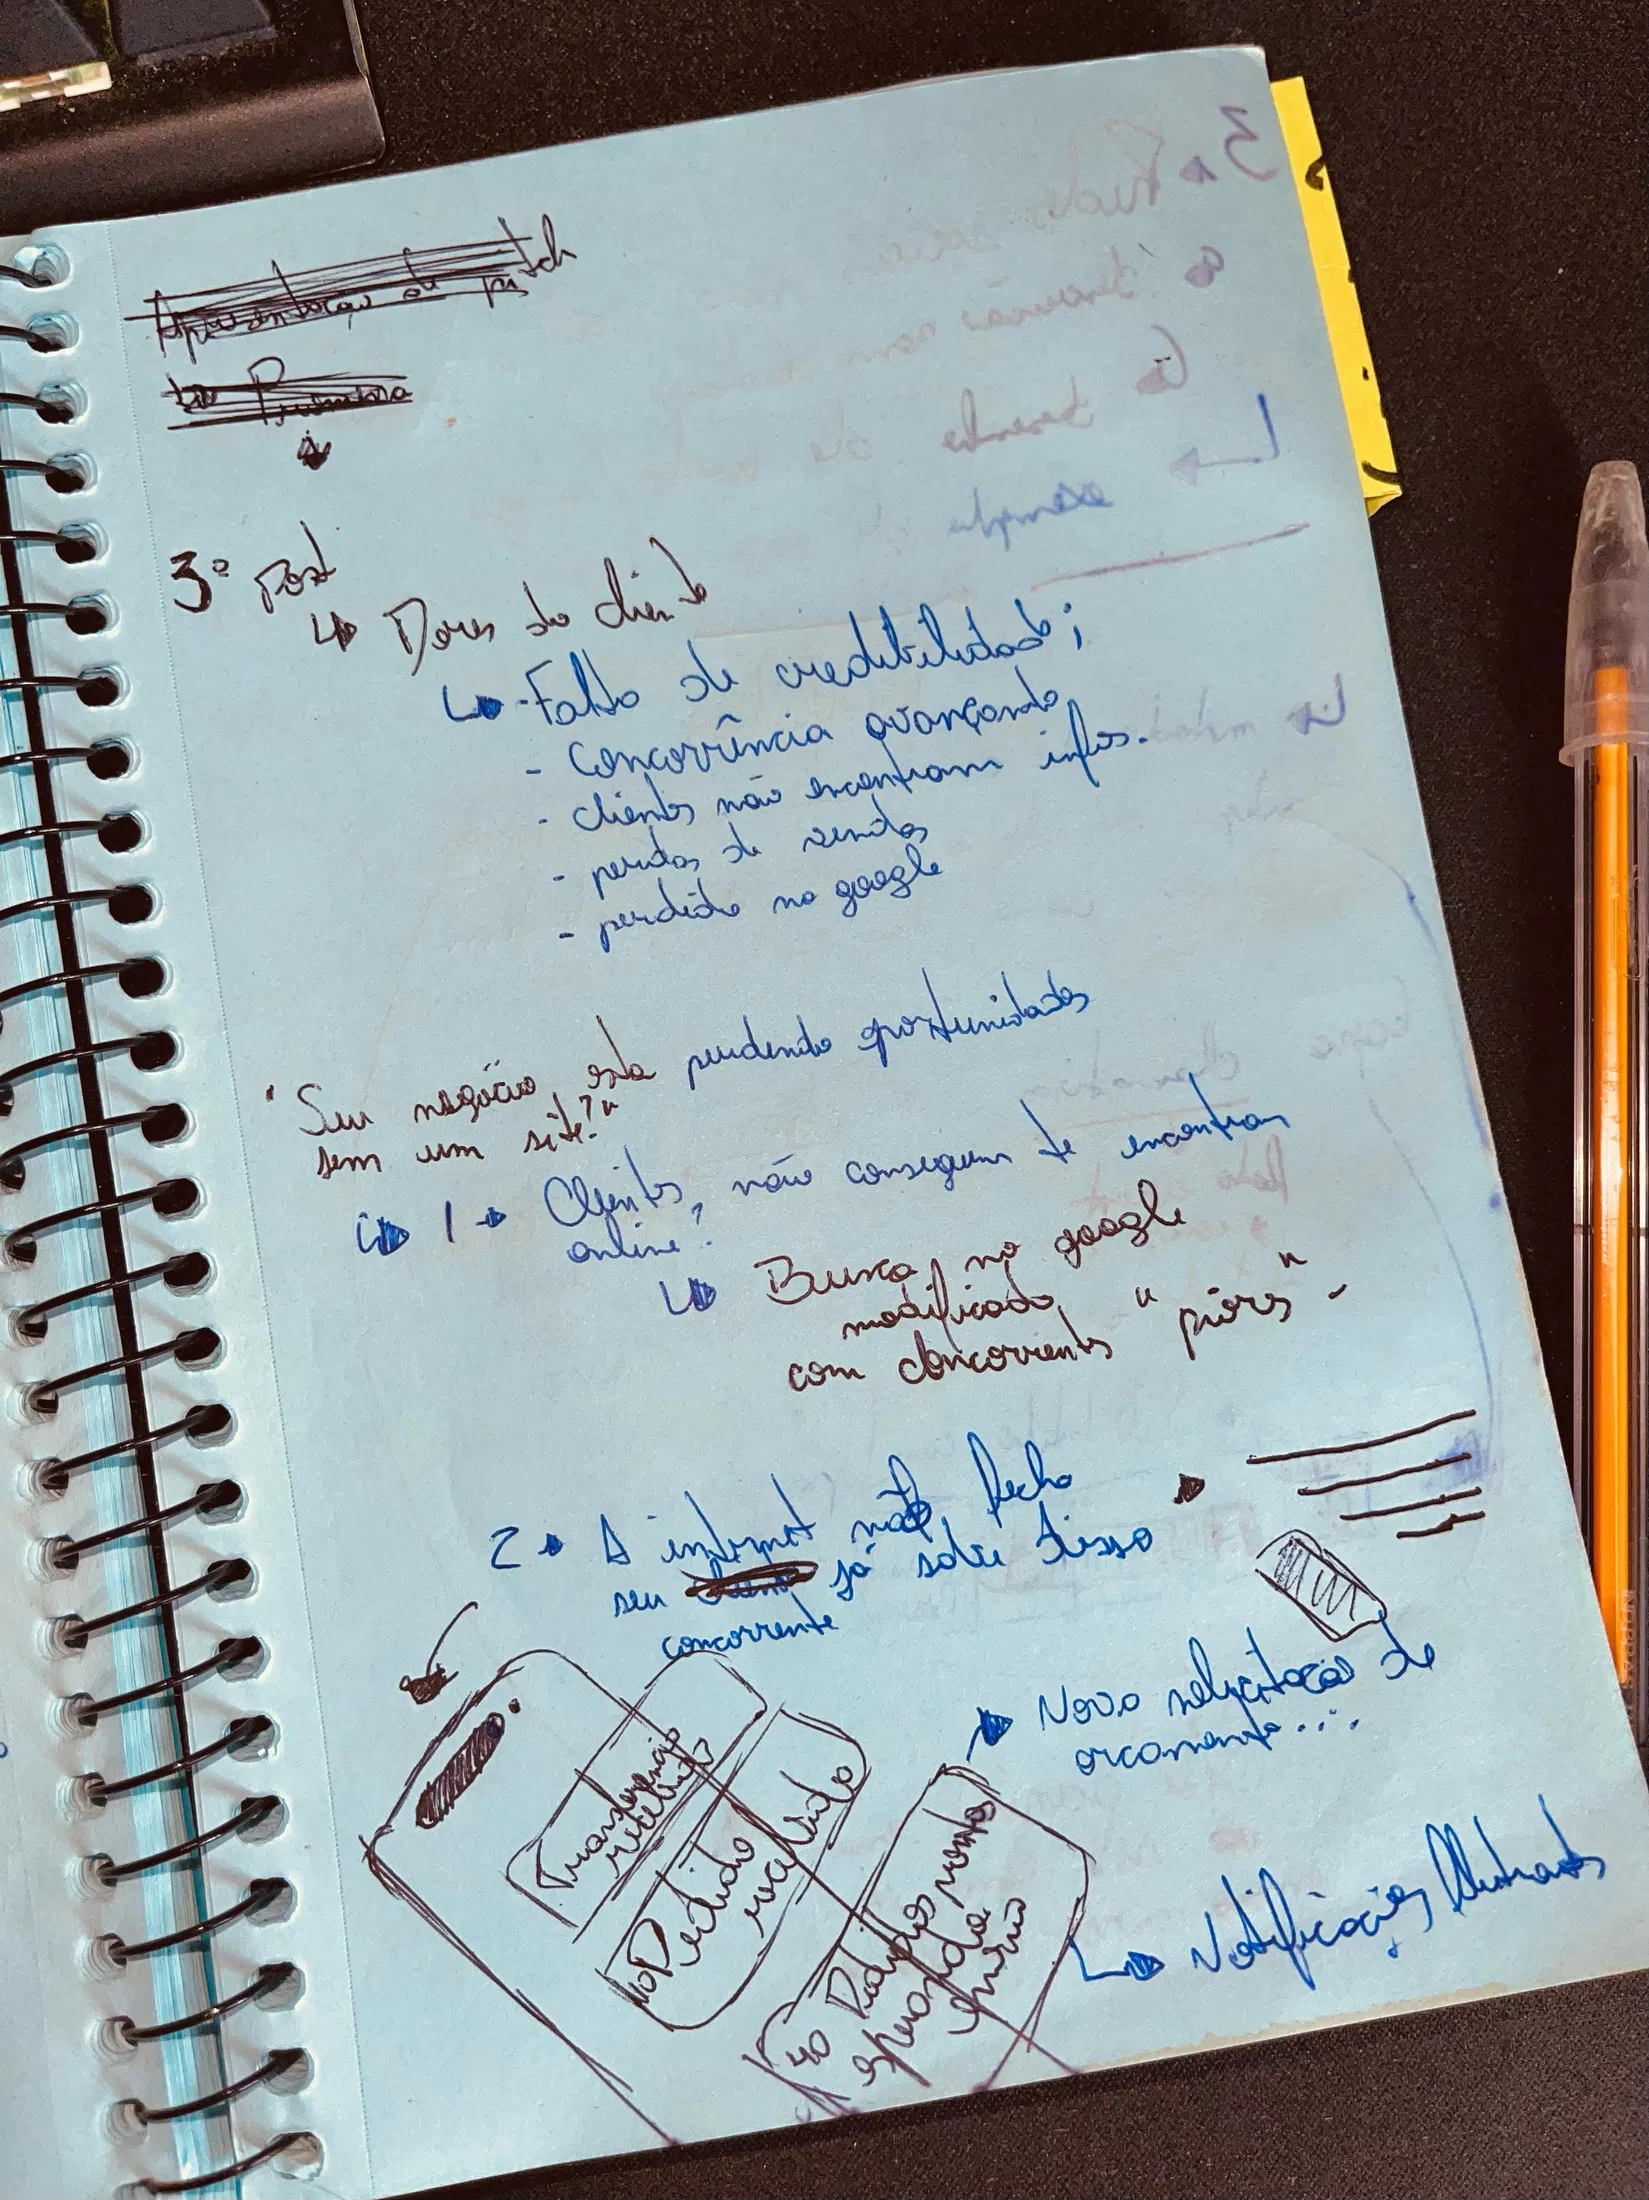 Apresentação de pitch
3º Post
Dores do cliente
- Falta de credibilidade;
- Concorrência avançando
- clientes não encontram infos.
- perdas de vendas
- perdido no google
"Seu negócio, esta perdendo oportunidades
sem um site?"
1 Clientes, não conseguem te encontrar
online?
Busca no google
modificada
com concorrentes "piores" -
2 A internet não fecha
seu já sabe disso
concorrente
Nova solicitação de
orcamento...
Transferencia
recebida
10 Pedido
realizado
40 Pedidos prontos
esperando
envio
Notificações flutuantes